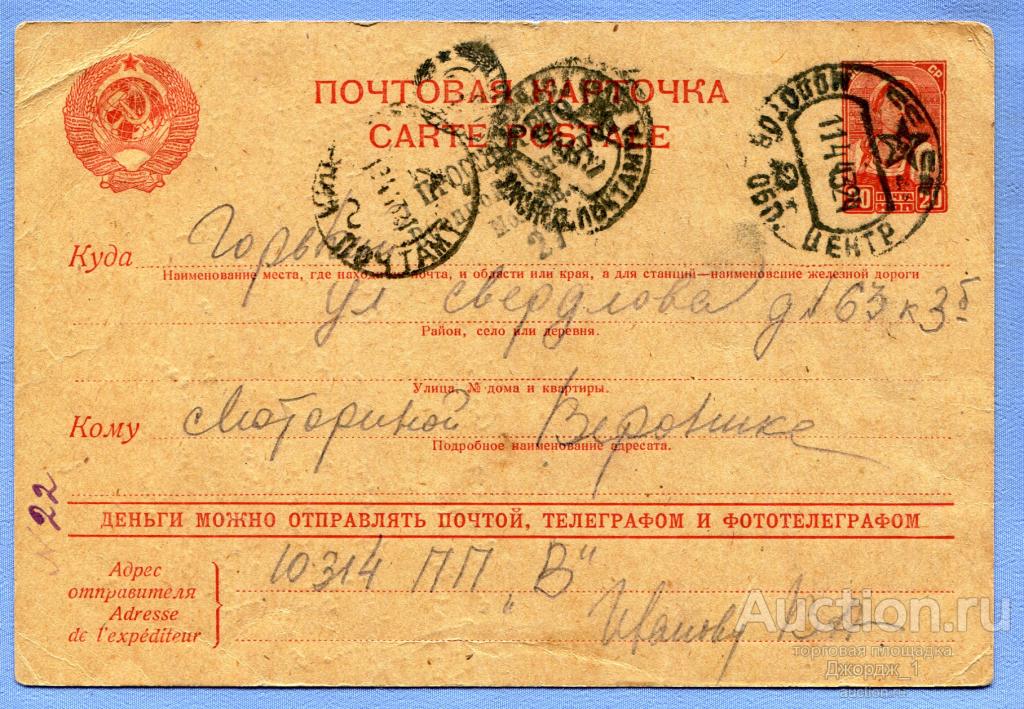 ПОЧТОВАЯ КАРТОЧКА
CARTE POSTALE
ПОЧТАМТ
ЦЕНТР
ОБЛ.
ПОЧТА
20 20
27
Куда Горький
Наименование места, где находится почта, и области или края, а для станций—наименовсние железной дороги
ул Свердлова д 63 к 3б
Район, село или деревня.
Улица, № дома и квартиры.
Кому Моториной Веронике
Подробное наименование адресата.
N 22
ДЕНЬГИ МОЖНО ОТПРАВЛЯТЬ ПОЧТОЙ, ТЕЛЕГРАФОМ И ФОТОТЕЛЕГРАФОМ
Адрес
отправителя
Adresse
de l'expéditeur
10314 ПП "В"
Иванову
Auction.ru
торговая площадка
Джордж_1
auction.ru